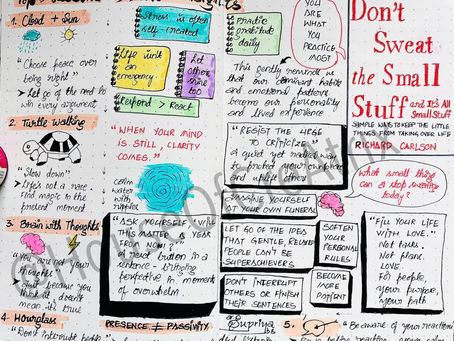 1. Cloud + Sun
"Choose peace over
being right"
Let go of the need to
win every argument
2. Turtle Walking
"Slow down"
Life's not a race
Find magic in the
present moment
3. Brain with Thoughts
"You are not your
thoughts"
Just because you
think it doesn't
mean it's true
4. Hourglass
Stress is often
self-created
Life isn't
an
emergency
Let
others
shine
too
Respond > React
"WHEN YOUR MIND
IS STILL, CLARITY
COMES."
Calm
water
with
ripples
"ASK YOURSELF 'WILL
THIS MATTER A YEAR
FROM NOW?'"
A reset button in a
sentence - bringing
perspective in moment
of overwhelm
PRESENCE ≠ PASSIVITY
gratitude
daily
YOU
ARE
WHAT
YOU
PRACTICE
MOST
This gently reminds us
that our dominant habits
and emotional patterns
become our personality
and lived experience
"RESIST THE URGE
TO CRITICIZE"
A quiet yet radical way
to protect your own peace
and uplift other
IMAGINE YOURSELF
AT YOUR OWN FUNERAL
LET GO OF THE IDEA
THAT GENTLE, RELAXED
PEOPLE CAN'T BE
SUPERACHIEVERS
SOFTEN
YOUR
PERSONAL
RULES
DON'T INTERRUPT
OTHERS OR FINISH
THEIR SENTENCES
BECOME
MORE
PATIENT
Supriya
5.
Don't
Sweat
the Small
Stuff and It's All
Small Stuff
SIMPLE WAYS TO KEEP THE LITTLE
THINGS FROM TAKING OVER LIFE
RICHARD CARLSON
What small thing
can I stop sweating
today?
"Fill your life
with love."
Not tasks.
Not plans.
Love.
For people,
your purpose,
your path
"Be aware of your reactions